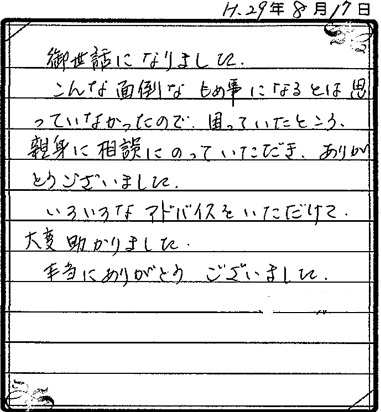 H.29年8月17日
御世話になりました.
こんな面倒な もめ事になるとは思
っていなかったので、困っていたところ、
親身に相談にのっていただき、ありが
とうございました.
いろいろなアドバイスをいただけて、
大変助かりました.
本当にありがとう ございました.